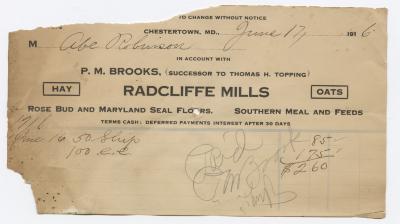 TO CHANGE WITHOUT NOTICE
CHESTERTOWN, MD., June 17, 1916
M Abe Robinson
IN ACCOUNT WITH
P. M. BROOKS, (SUCCESSOR TO THOMAS H. TOPPING)
HAY RADCLIFFE MILLS OATS
ROSE BUD AND MARYLAND SEAL FLOURS. SOUTHERN MEAL AND FEEDS
TERMS CASH; DEFERRED PAYMENTS INTEREST AFTER 30 DAYS
June 16 50 Ship 85
100 C.C. 175
$2.60
Pd
PM Brooks